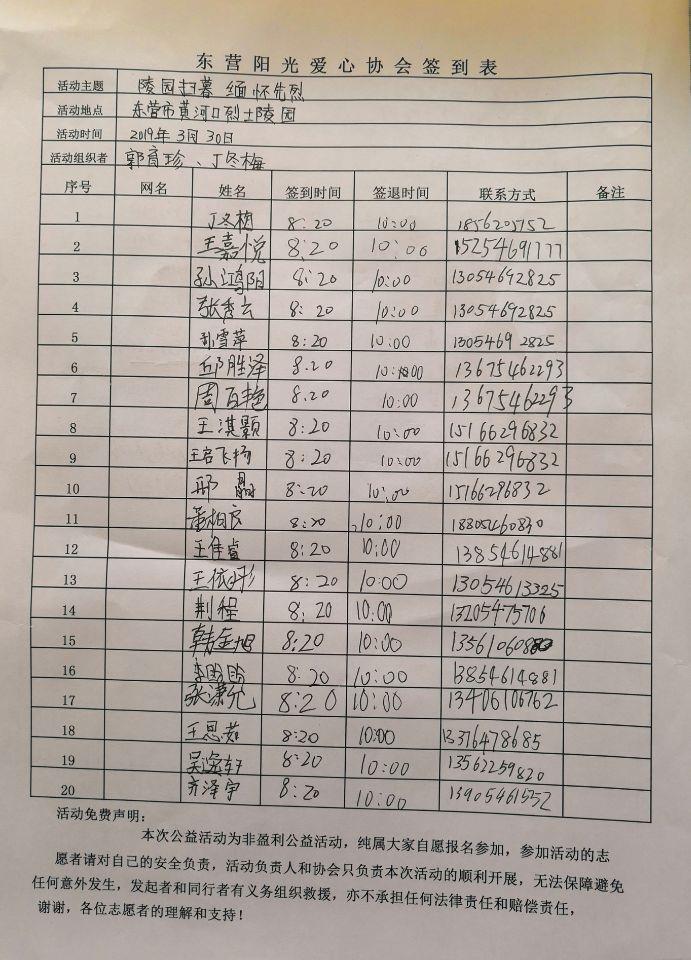 东营阳光爱心协会签到表
活动主题 陵园扫墓 缅怀先烈
活动地点 东营市黄河口烈士陵园
活动时间 2019年3月30日
活动组织者 郭育珍、丁冬梅
序号 网名 姓名 签到时间 签退时间 联系方式 备注
1 丁冬梅 8:20 10:00 1856205752
2 王嘉悦 8:20 10:00 15254691777
3 孙鸿阳 8:20 10:00 13054692825
4 张秀云 8:20 10:00 13054692825
5 孙雪苹 8:20 10:00 13054692825
6 邱胜泽 8.20 10:00 13675462293
7 周百艳 8.20 10:00 13675462293
8 王淇颢 8:20 10:00 15166296832
9 王启飞扬 8:20 10:00 15166296832
10 邢晶 8:20 10:00 15166296832
11 董柏良 8:20 10:00 18805460830
12 王佳睿 8:20 10:00 13854614881
13 王依彤 8:20 10:00 13054613325
14 荆程 8:20 10:00 13205475706
15 韩金旭 8:20 10:00
16 8:20 10:00 13854614881
17 张潇允 8:20 10:00 13406106762
18 王思茹 8:20 10:00 13376478685
19 8:20 10:00 13562259820
20 齐泽宇 8:20 10:00 13905461552
活动免费声明：
本次公益活动为非盈利公益活动，纯属大家自愿报名参加，参加活动的志
愿者请对自己的安全负责，活动负责人和协会只负责本次活动的顺利开展，无法保障避免
任何意外发生，发起者和同行者有义务组织救援，亦不承担任何法律责任和赔偿责任，
谢谢，各位志愿者的理解和支持！